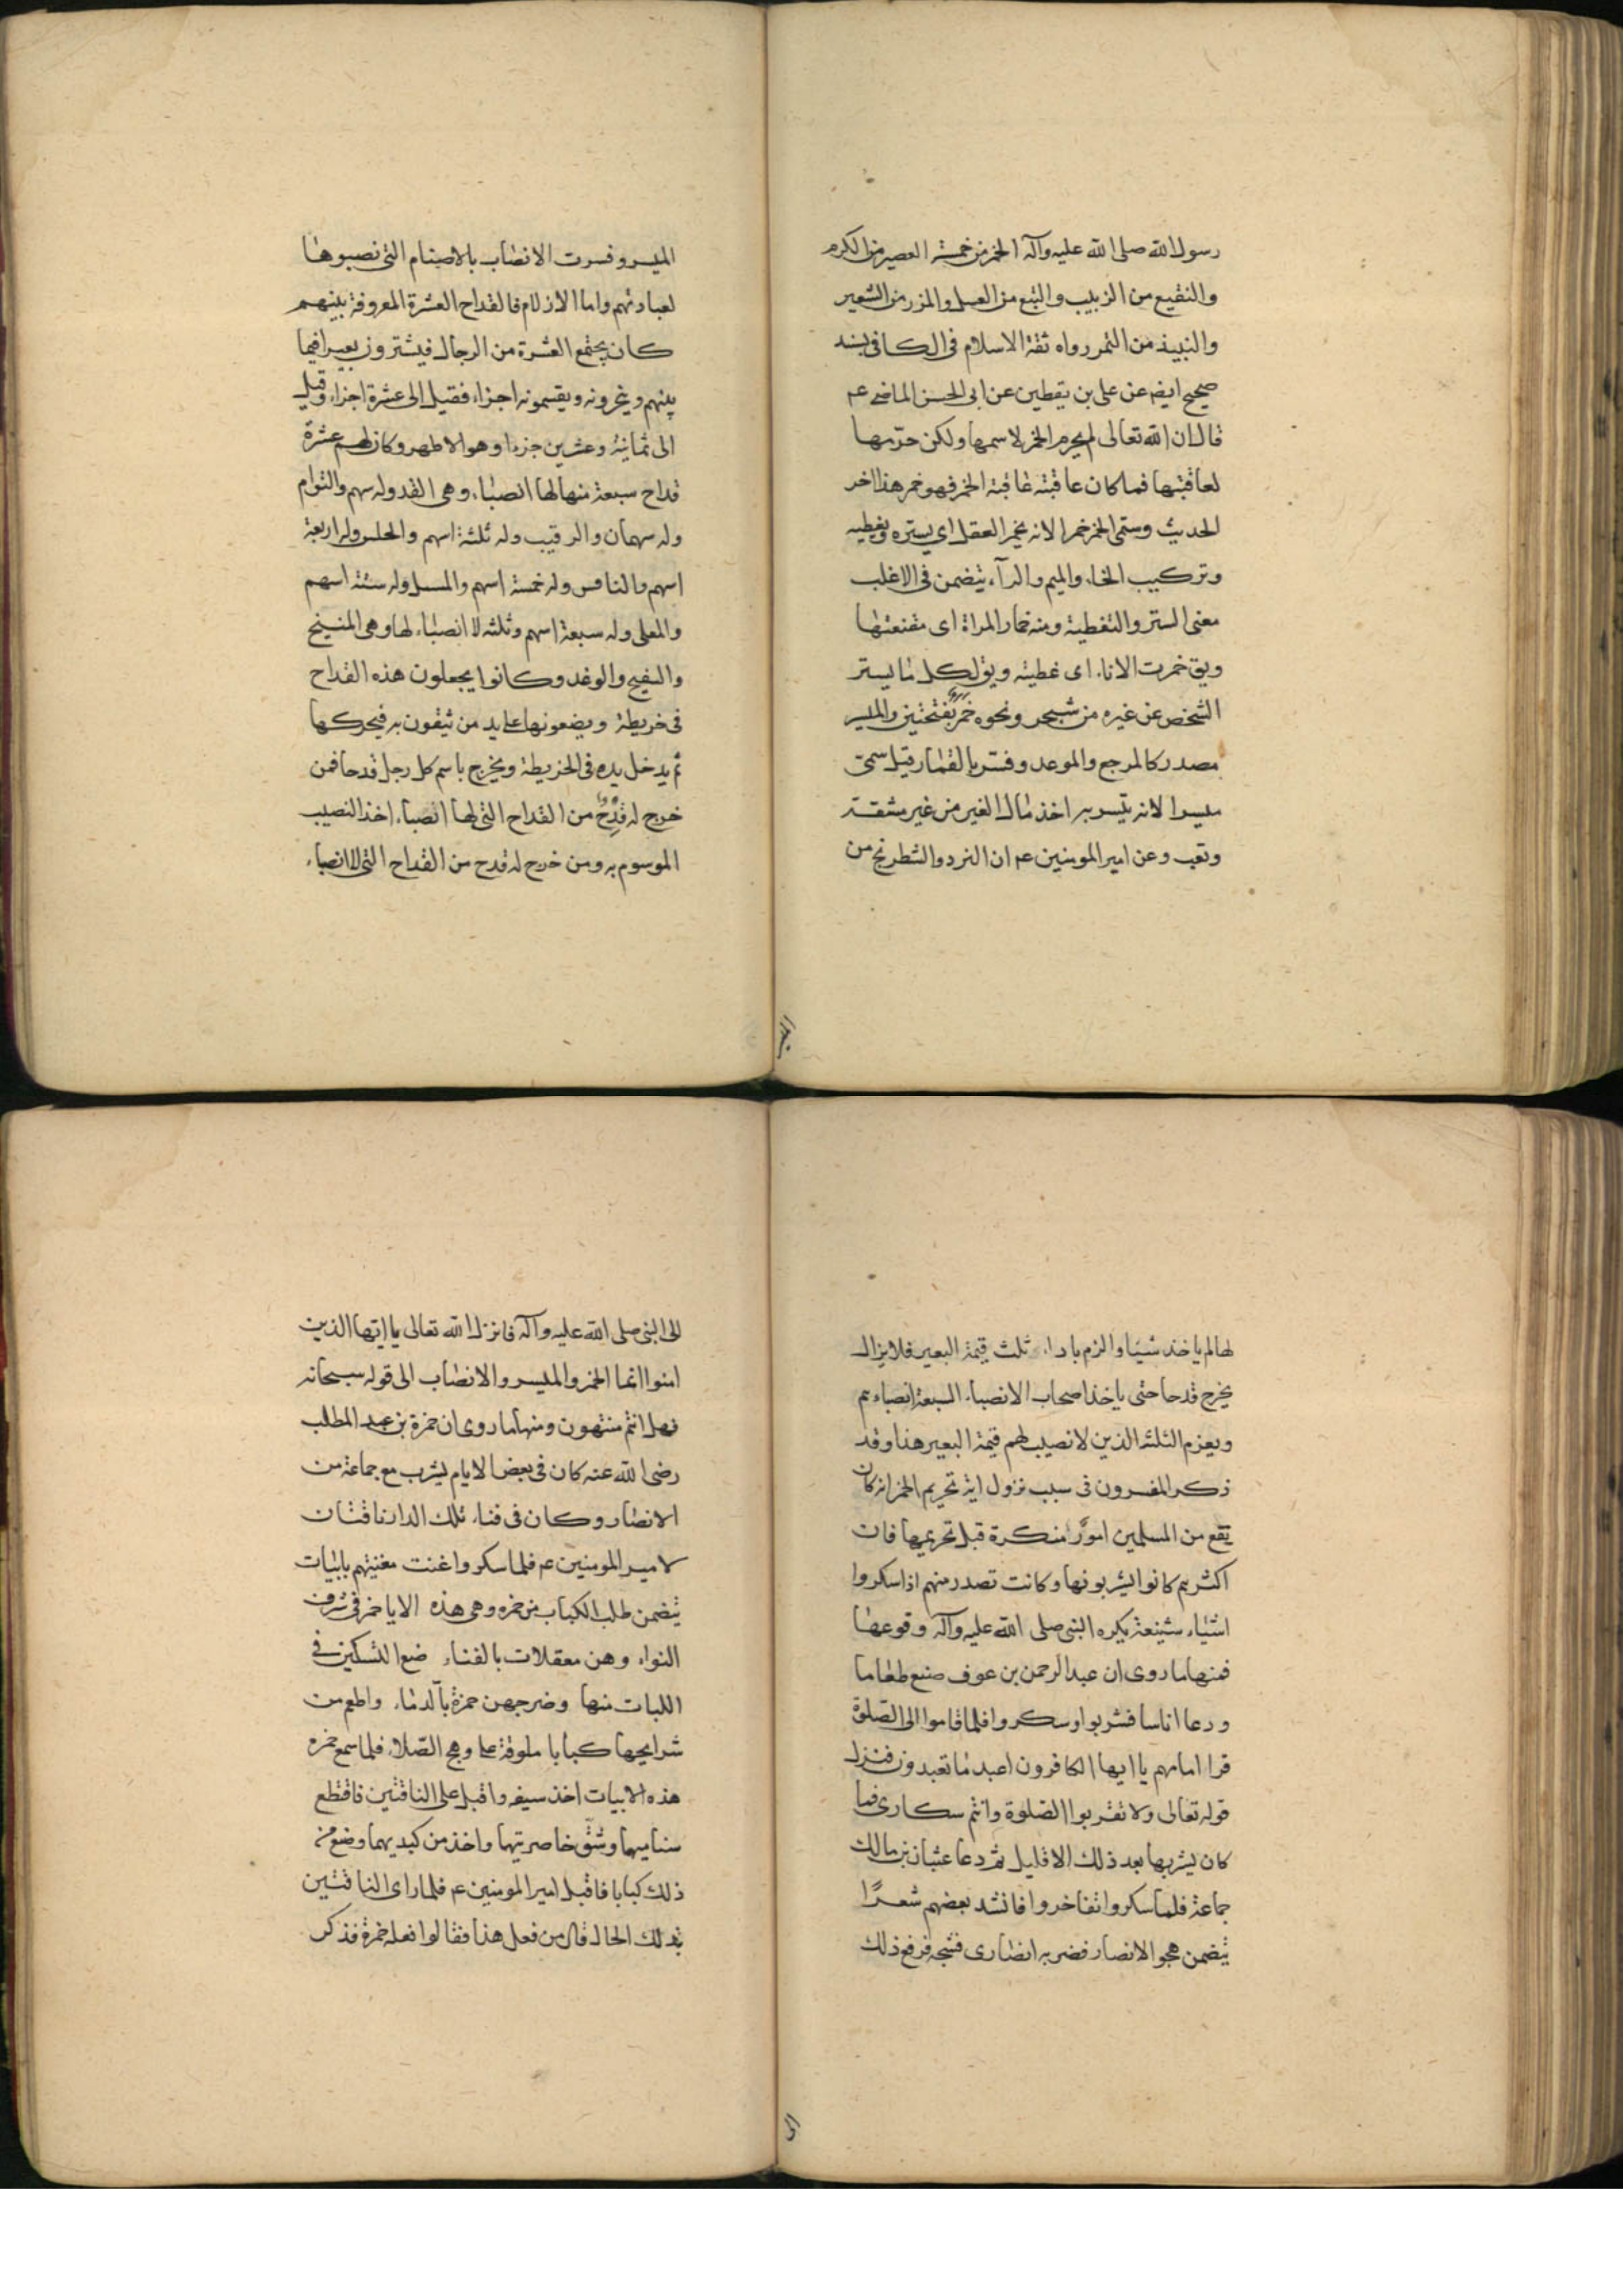 رسول الله صلى الله عليه وآله الخمر من خمسة العصير من الكرم
والنقيع من الزبيب والتبع من العسل والمزر من الشعير
والنبيذ من التمر رواه ثقة الاسلام في الكافي بسند
صحيح ايضا عن على بن يقطين عن ابى الحسن الماضى عم
قال ان الله تعالى لم يحرم الخمر لاسمها ولكن حرّمها
لعاقبتها فما كان عاقبته عاقبة الخمر فهو خمر هذا اخر
الحديث وسمّى الخمر خمرا لانه يخمر العقل اى يستره ويغطيه
وتركيب الخاء والميم والرآء يتضمن فى الاغلب
معنى الستر والتغطية ومنه خمار المراة اى مقنعتها
ويق خمرت الاناء اى غطيته ويق لكل ما يستر
الشخص عن غيره من شجر ونحوه خمر بفتحتين والميسر
مصدر كالمرجع والموعد وفسّر بالقمار قيل سمّى
ميسرا لانه يتيسر به اخذ مال الغير من غير مشقة
وتعب وعن امير المومنين عم ان النرد والشطرنج من
الميسر
الميسر وفسرت الانصاب بالاصنام التى نصبوها
لعبادتهم واما الازلام فالقداح العشرة المعروفة بينهم
كان يجتمع العشرة من الرجال فيشترون بعيرا فيما
بينهم وينحرونه ويقسمونه اجزاء فقيل الى عشرة اجزاء وقيل
الى ثمانية وعشرين جزءا وهو الاظهر وكان لهم عشرة
قداح سبعة منها لها انصباء وهى الفذ وله سهم والتوام
وله سهمان والرقيب وله ثلثة اسهم والحلس وله اربعة
اسهم والنافس وله خمسة اسهم والمسبل وله ستة اسهم
والمعلى وله سبعة اسهم وثلثه لا انصباء لها وهى المنيح
والسفيح والوغد وكانوا يجعلون هذه القداح
فى خريطة ويضعونها على يد من يثقون به فيحركها
ثم يدخل يده فى الخريطة ويخرج باسم كل رجل قدحا فمن
خرج له قدح من القداح التى لها انصباء اخذ النصيب
الموسوم به ومن خرج له قدح من القداح التى لا انصباء
لها لم ياخذ شيئا والزم باداء ثلث قيمة البعير فلا يزال
يخرج قدحا حتى ياخذ اصحاب الانصباء السبعة انصباءهم
ويغرم الثلثه الذين لا نصيب لهم قيمة البعير هذا وقد
ذكر المفسرون فى سبب نزول اية تحريم الخمر انه كان
يقع من المسلمين امورٌ منكرة قبل تحريمها فان
اكثرهم كانوا يشربونها وكانت تصدر منهم اذا سكروا
اشياء شنيعة يكره النبى صلى الله عليه وآله وقوعها
فمنها ما روى ان عبد الرحمن بن عوف صنع طعاما
ودعا اناسا فشربوا وسكروا فلما قاموا الى الصّلوة
قرا امامهم يا ايها الكافرون اعبد ما تعبدون فنزل
قوله تعالى ولا تقربوا الصّلوة وانتم سكارى فما
كان يشربها بعد ذلك الا قليل ثم دعا عتبان بن مالك
جماعة فلما سكروا تفاخروا فانشد بعضهم شعرًا
يتضمن هجو الانصار فضربه انصارى فشجه فرفع ذلك
الى
الى النبى صلى الله عليه وآله فانزل الله تعالى يا ايّها الذين
امنوا انما الخمر والميسر والانصاب الى قوله سبحانه
فهل انتم منتهون ومنها ما روى ان حمزة بن عبد المطلب
رضى الله عنه كان فى بعض الايام يشرب مع جماعة من
الانصار وكان فى فناء تلك الدار ناقتان
لامير المومنين عم فلما سكروا غنت مغنيتهم بابيات
يتضمن طلب الكباب من حمزه وهى هذه الا يا حمز فى شرف
النواء وهن معقلات بالفناء ضع السّكين فى
اللبات منها وضرجهن حمزة بآلدماء واطعم من
شرايحها كبابا ملوقة على وهج الصّلاء فلما سمع حمزه
هذه الابيات اخذ سيفه واقبل على الناقتين فاقتطع
سناميهما وشق خاصرتيها واخذ من كبديهما وضع من
ذلك كبابا فاقبل امير المومنين عم فلما راى الناقتين
بذلك الحال قال من فعل هذا فقالوا فعله حمزة فذكر